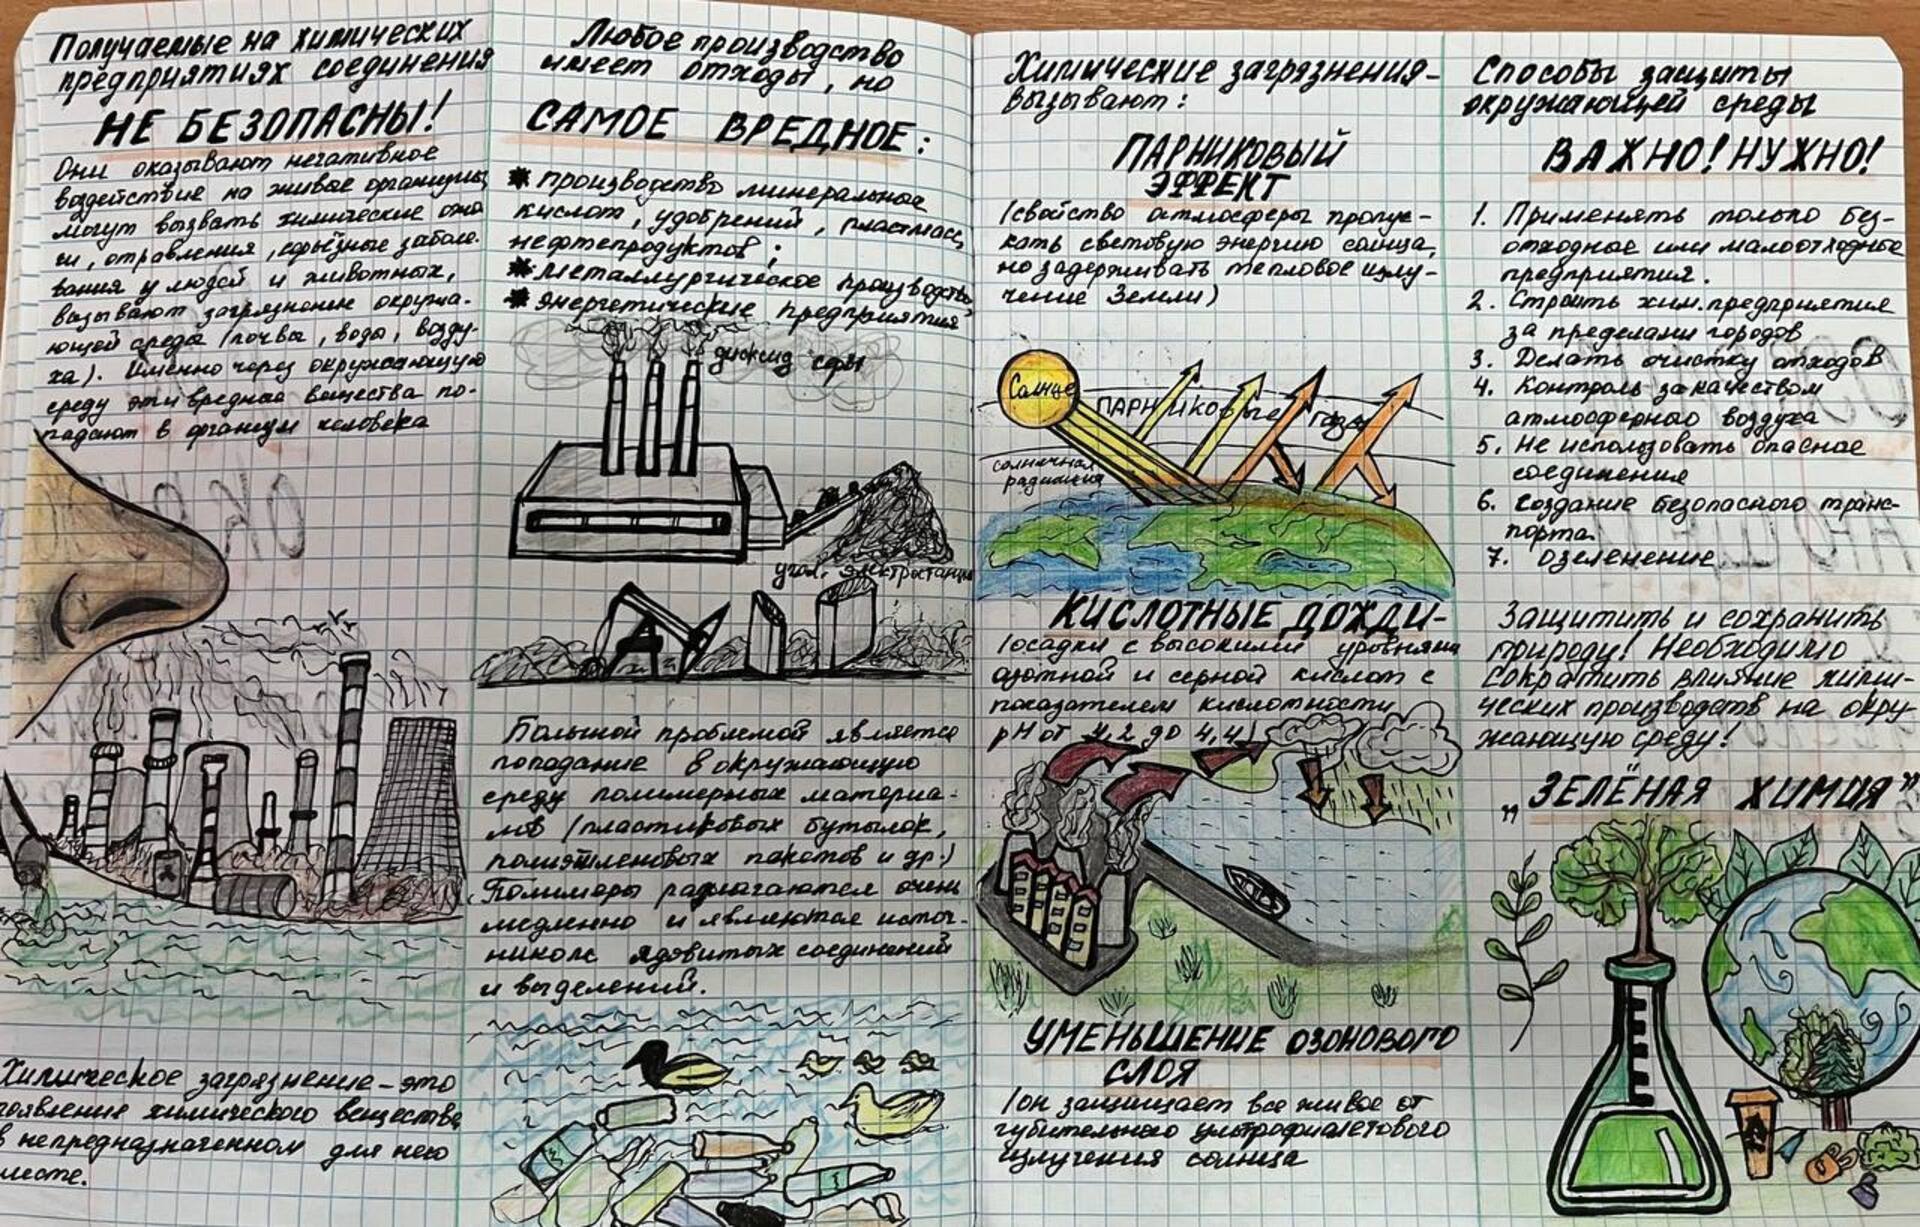 Получаемые на химических
предприятиях соединения
НЕ БЕЗОПАСНЫ!
Они оказывают негативное
воздействие на живые организмы
могут вызвать химические ожо
ги, отравления, серьёзные заболе-
вания у людей и животных,
вызывают загрязнение окружа-
ющей среды (почва, вода, возду-
ха). Именно через окружающую
среду эти вредные вещества по-
падают в организм человека
Химическое загрязнение - это
появление химического вещества
в непредназначенном для него
месте.
Любое производство
имеет отходы, но
САМОЕ ВРЕДНОЕ:
* производство минеральных
кислот, удобрений, пластмасс,
нефтепродуктов;
* металлургическое производство
* энергетические предприятия
диоксид серы
угол. электростанция
Большой проблемой является
попадание в окружающую
среду полимерных материа-
лов (пластиковых бутылок,
полиэтиленовых пакетов и др.)
Полимеры разлагаются очень
медленно и являются источ-
ником ядовитых соединений
и выделений.
Химические загрязнения-
вызывают:
ПАРНИКОВЫЙ
ЭФФЕКТ
(свойство атмосферы пропус-
кать световую энергию солнца,
но задерживать тепловое излу-
чение Земли)
Солнце
ПАРНИКОВЫЕ газы
солнечная
радиация
КИСЛОТНЫЕ ДОЖДИ-
(осадки с высокими уровнями
азотной и серной кислот с
показателем кислотности
pH от 4,2 до 4,4)
УМЕНЬШЕНИЕ ОЗОНОВОГО
СЛОЯ
(он защищает все живое от
губительного ультрафиолетового
излучения солнца
Способы защиты
окружающей среды
ВАЖНО! НУЖНО!
1. Применять только без-
отходные или малоотходные
предприятия.
2. Строить хим. предприятия
за пределами городов
3. Делать очистку отходов
4. Контроль за качеством
атмосферного воздуха
5. Не использовать опасные
соединения
6. Создание безопасного транс-
порта.
7. Озеленение
Защитить и сохранить
природу! Необходимо
Сократить влияние хими-
ческих производств на окру
жающую среду!
„ЗЕЛЁНАЯ ХИМИЯ"